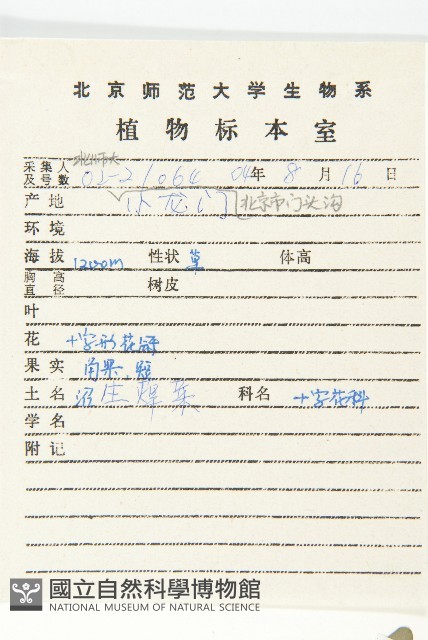 北京师范大学生物系
植物标本室
北师大
采集人及号数 02-21064 04年8月16日
产地 小龙门 北京市门头沟
环境
海拔 1200m 性状 草 体高
胸高直径 树皮
叶
花 十字形花冠
果实 角果
土名 沼生蔊菜 科名 十字花科
学名
附记
國立自然科學博物館
NATIONAL MUSEUM OF NATURAL SCIENCE